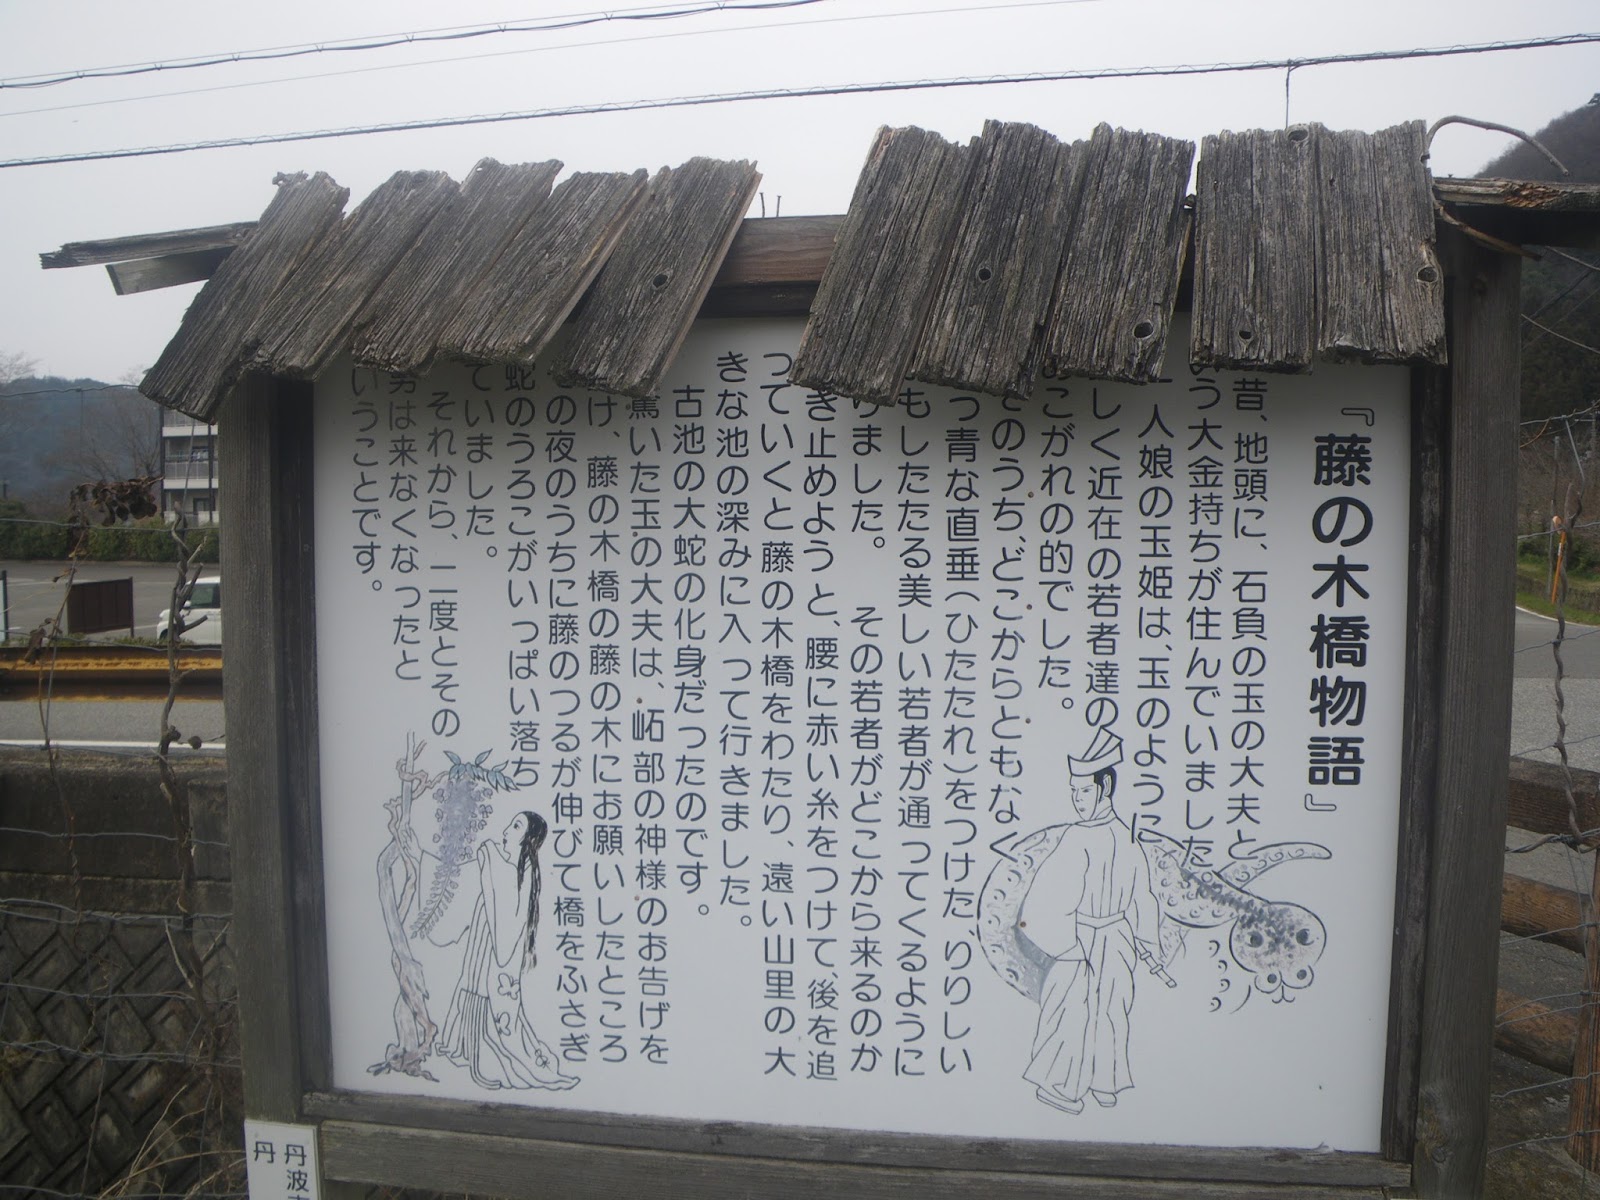 『藤の木橋物語』
昔、地頭に、石負の玉の大夫と
う大金持ちが住んでいました。
一人娘の玉姫は、玉のように
しく近在の若者達の
こがれの的でした。
そのうち、どこからともなく
つ青な直垂(ひたたれ)をつけたりりしい
もしたたる美しい若者が通ってくるように
りました。　その若者がどこから来るのか
き止めようと、腰に赤い糸をつけて、後を追
っていくと藤の木橋をわたり、遠い山里の大
きな池の深みに入って行きました。
古池の大蛇の化身だったのです。
驚いた玉の大夫は、岶部の神様のお告げを
け、藤の木橋の藤の木にお願いしたところ
の夜のうちに藤のつるが伸びて橋をふさぎ
蛇のうろこがいっぱい落ち
ていました。
それから、二度とその
男は来なくなったと
いうことです。
丹波
丹